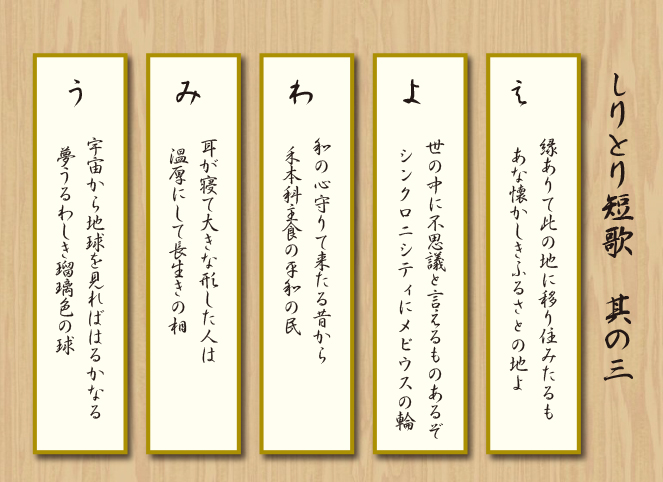 しりとり短歌　其の三
え
縁ありて此の地に移り住みたるも
あな懐かしきふるさとの地よ
よ
世の中に不思議と言えるものあるぞ
シンクロニシティにメビウスの輪
わ
和の心守りて来たる昔から
禾本科主食の平和の民
み
耳が寝て大きな形した人は
温厚にして長生きの相
う
宇宙から地球を見ればはるかなる
夢うるわしき瑠璃色の球